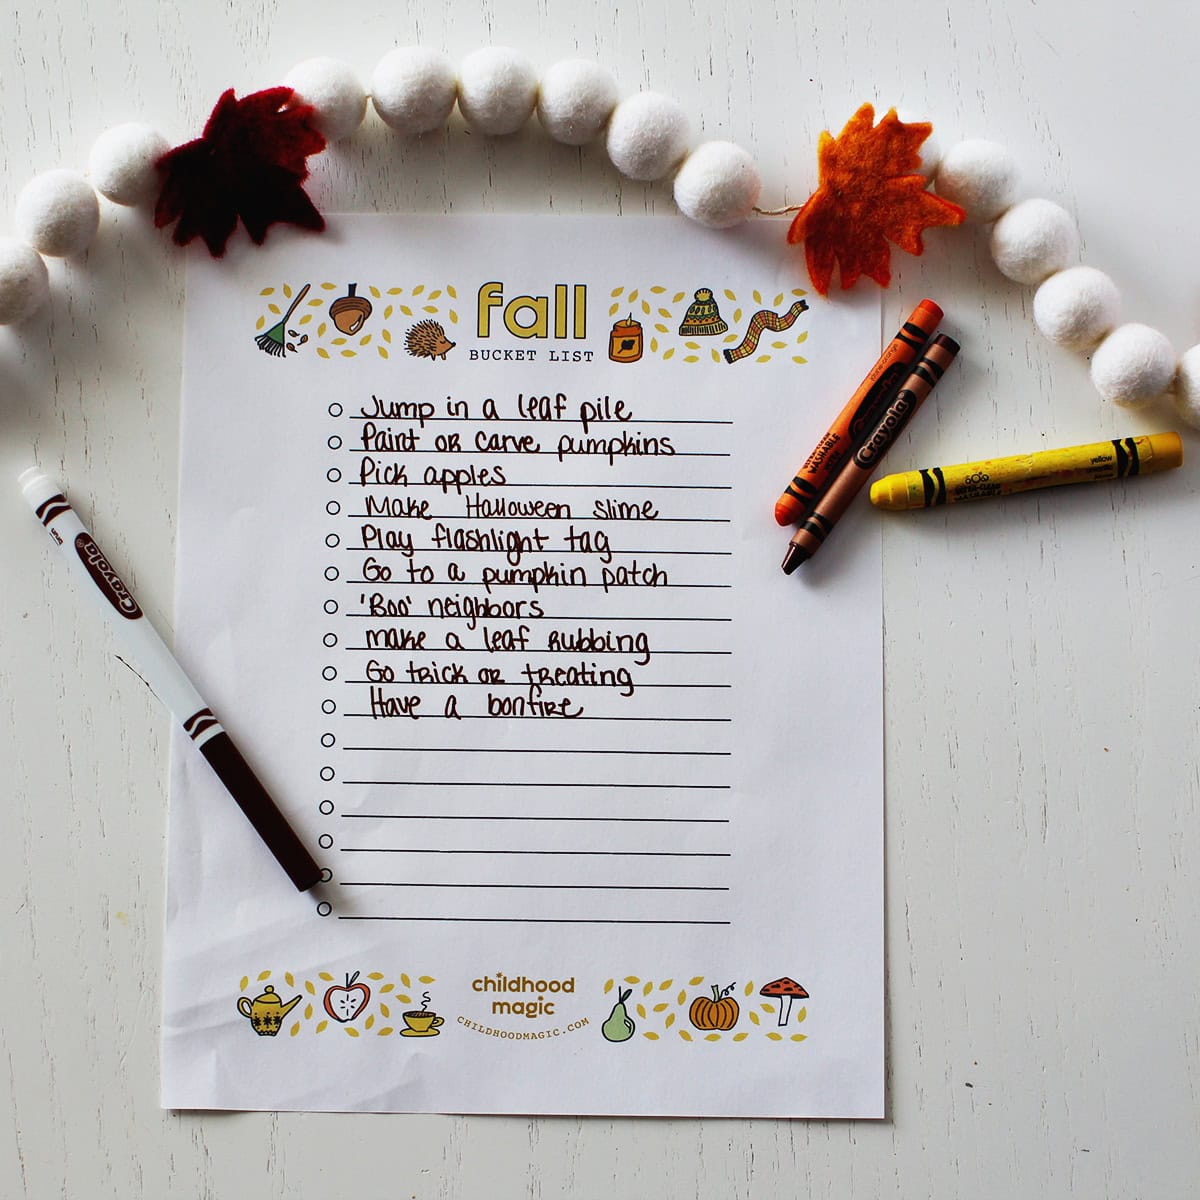 fall
BUCKET LIST
Jump in a leaf pile
Paint or carve pumpkins
Pick apples
Make Halloween slime
Play flashlight tag
Go to a pumpkin patch
'Boo' neighbors
make a leaf rubbing
Go trick or treating
Have a bonfire
childhood
magic
CHILDHOODMAGIC.COM
Crayola
Crayola
ULTRA-CLEAN
WASHABLE
yellow
ULTRA-CLEAN
WASHABLE